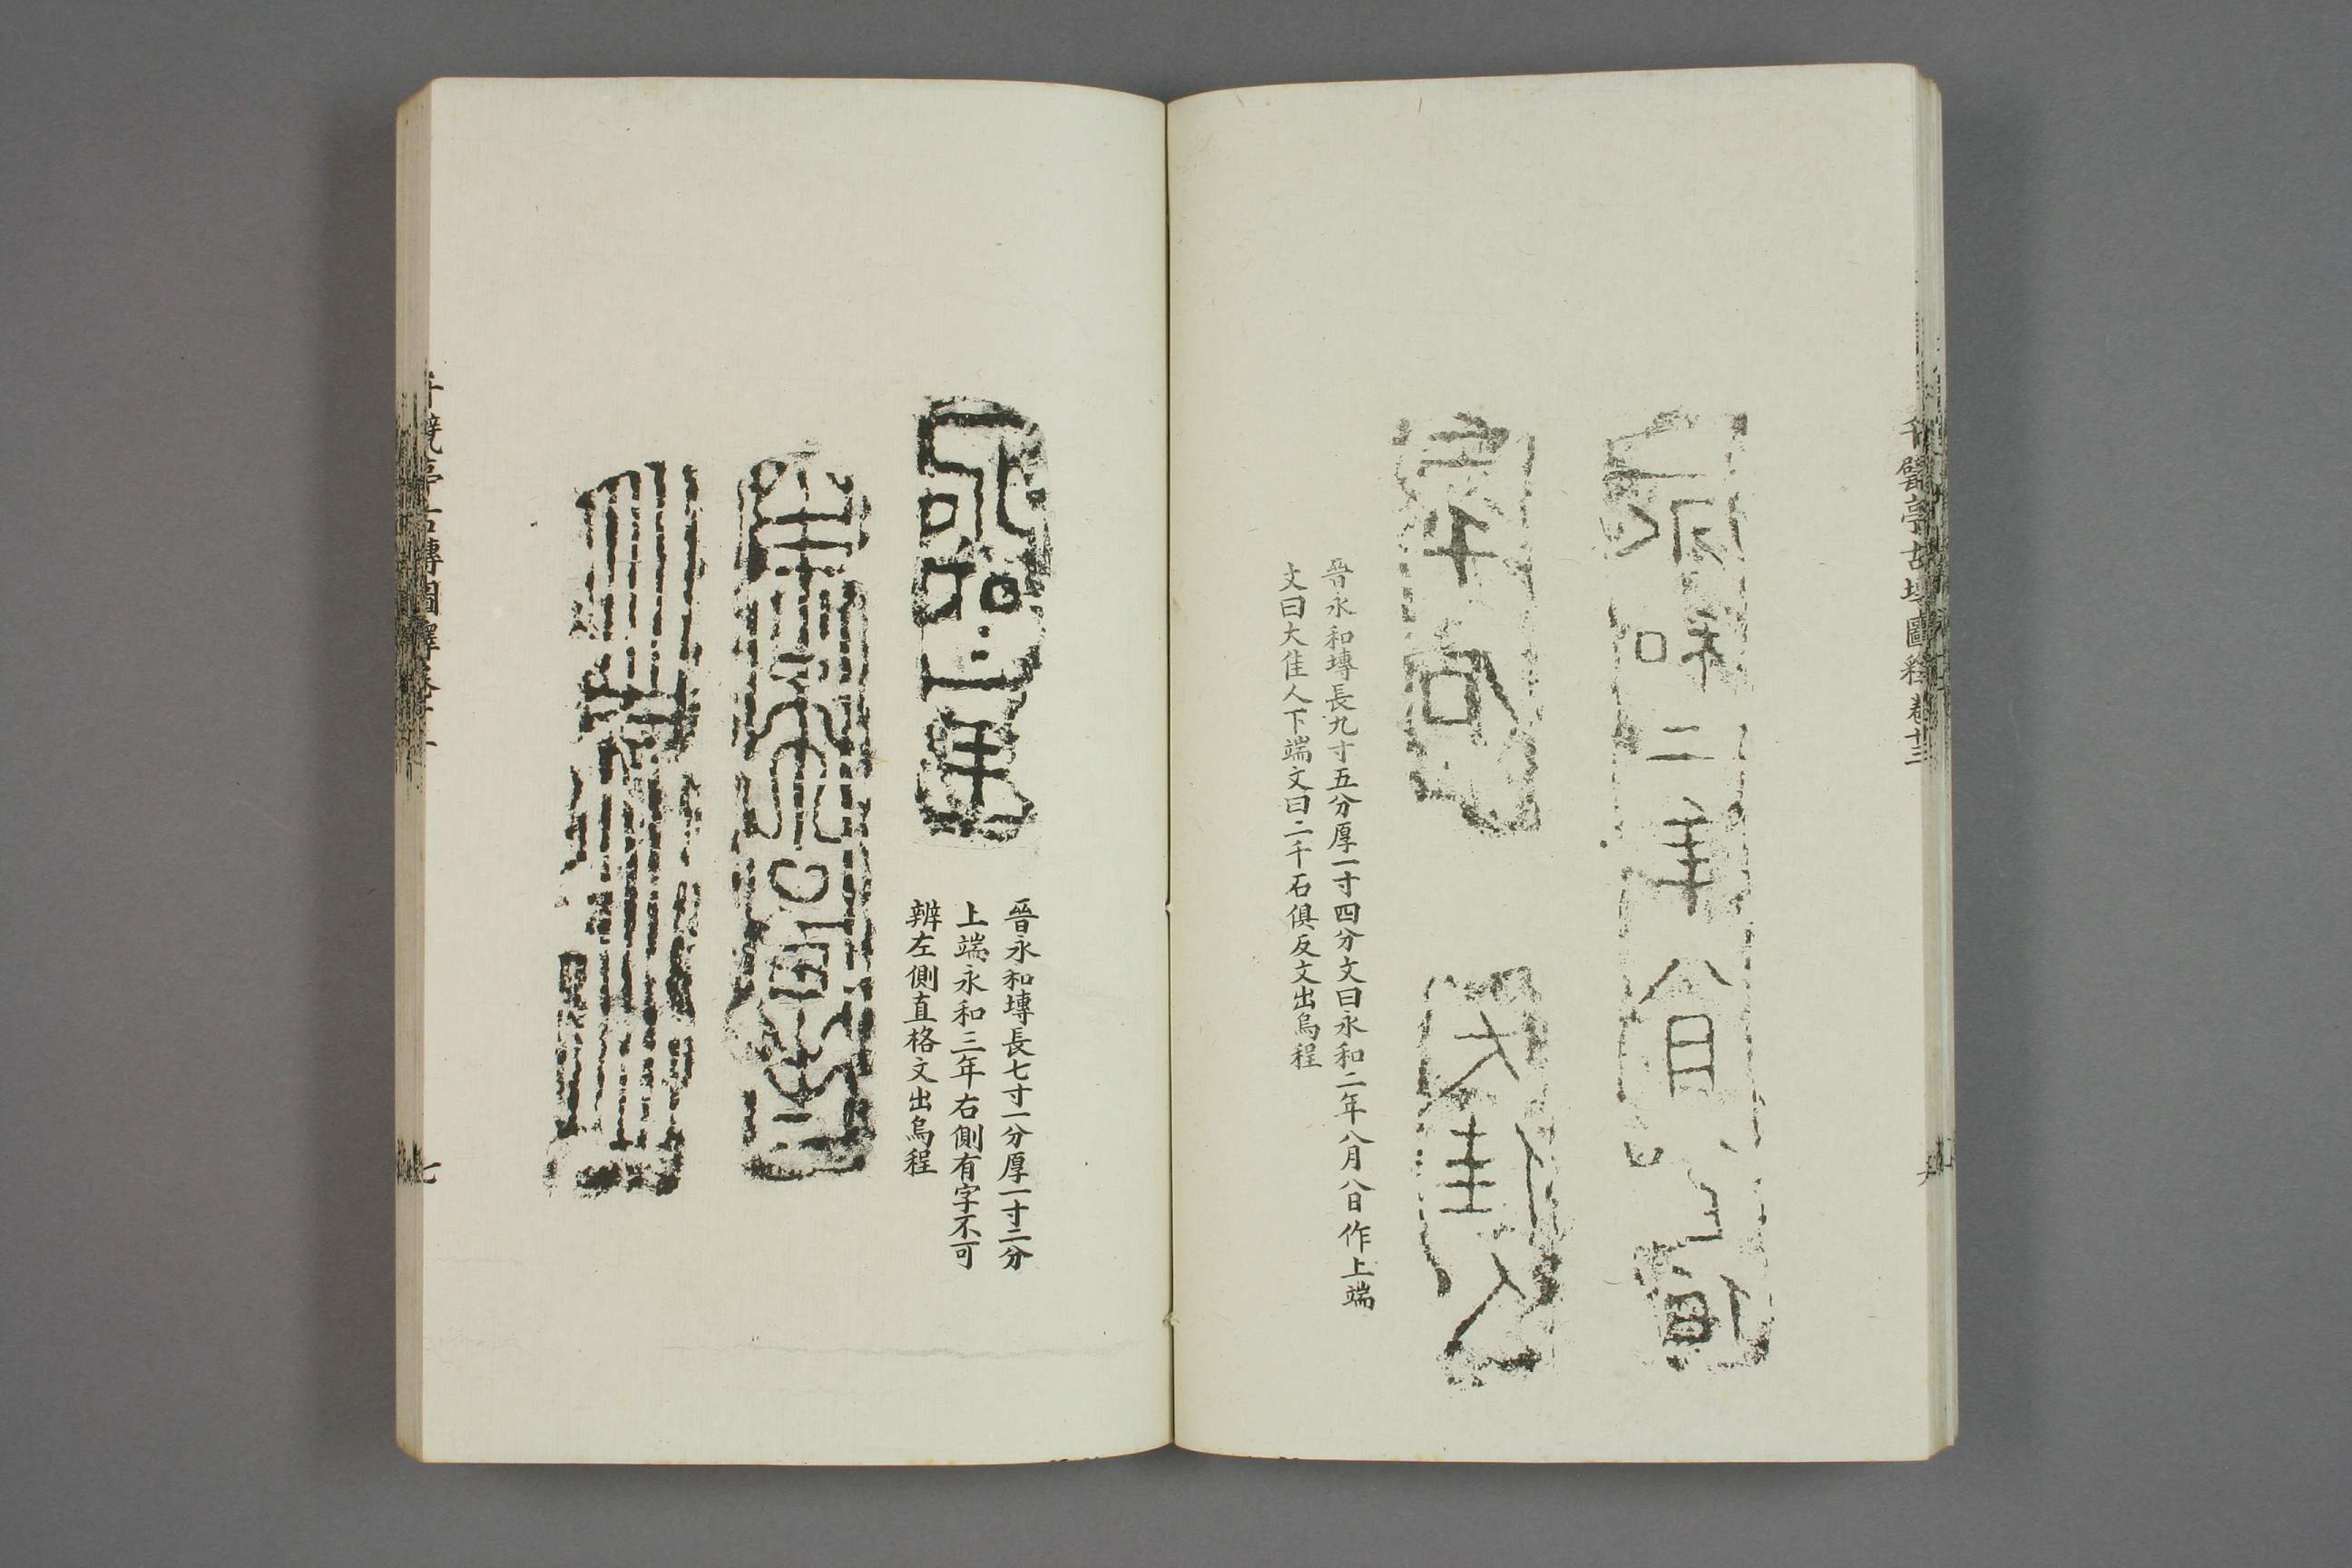 千甓亭古塼圖釋卷十三
永和二年八月八日作
二千石
大佳人
晉永和塼長九寸五分厚一寸四分文曰永和二年八月八日作上端
文曰大佳人下端文曰二千石俱反文出烏程
永和三年
晉永和塼長七寸一分厚一寸二分
上端永和三年右側有字不可
辨左側直格文出烏程
千甓亭古塼圖釋卷十
七